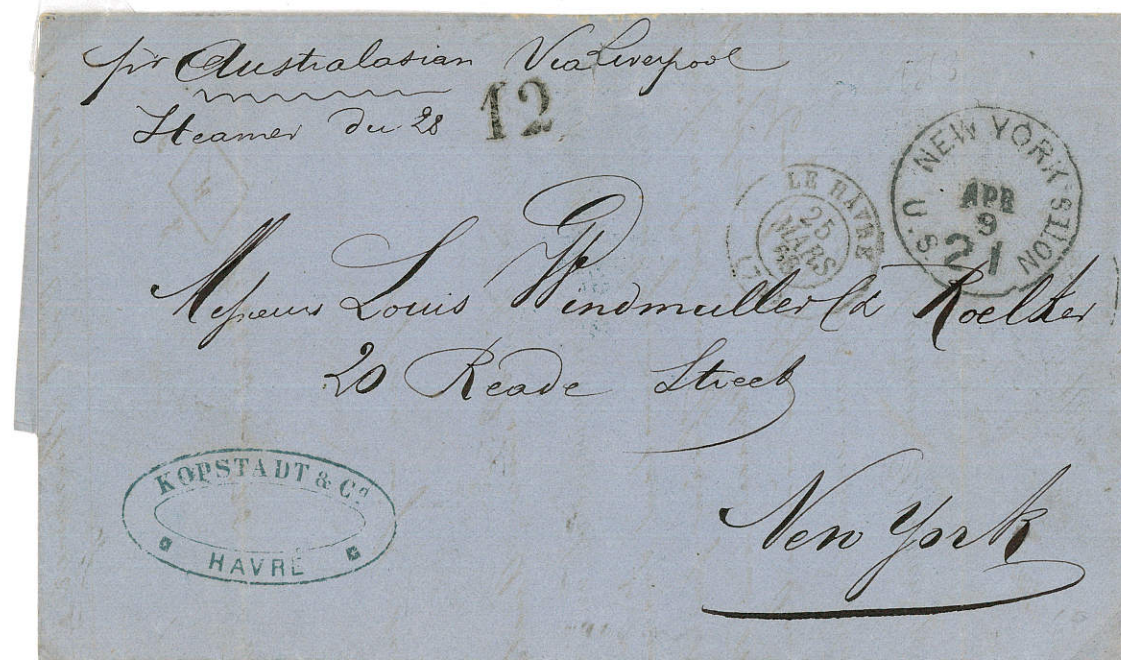 pr Australasian Via Liverpool
Steamer du 28
12
LE HAVRE
25
MARS
NEW YORK
U.S. NOTES
APR
9
21
Messieurs Louis Windmuller & Roelker
20 Reade Street
New York
KOPSTADT & Cº
HAVRE